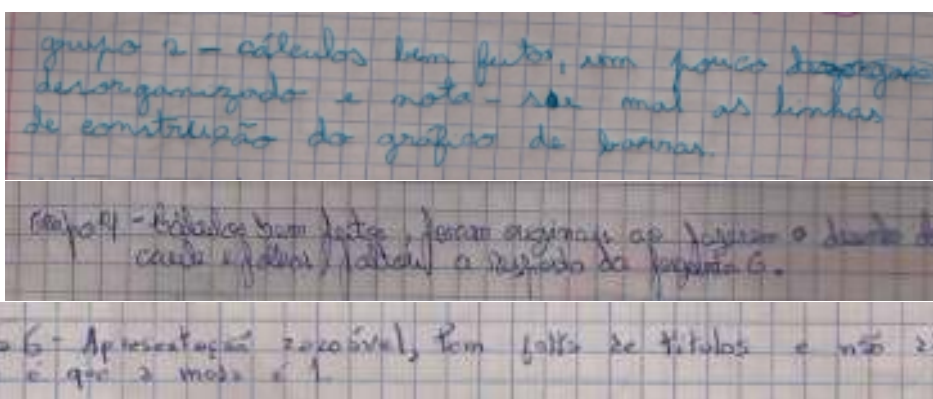 grupo 2 - cálculos bem feitos, um pouco
desorganizado e nota-se mal as linhas
de construção do gráfico de barras.
Grupo 4 - Trabalho bem feito, foram originais ao fazerem o desenho
caule e folhas, faltou a resposta da pergunta 6.
6 - Apresentação razoável, tem falta de títulos e não
é que a moda é 1.